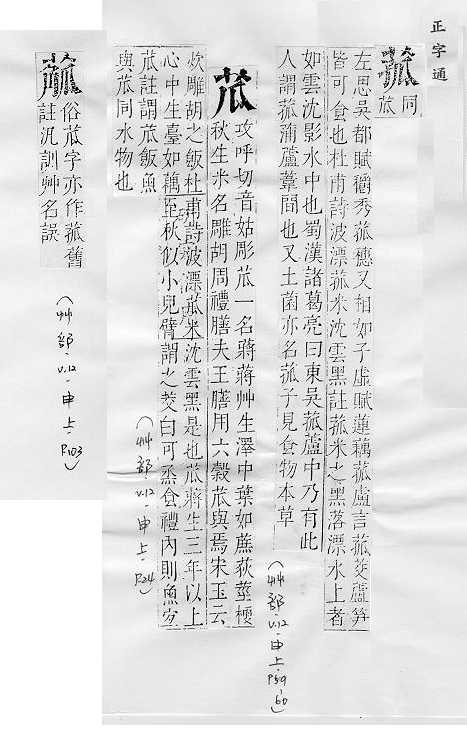 正字通
菰
同
苽
左思吳都賦穱秀菰穗又相如子虛賦蓮藕菰盧言菰茭蘆笋
皆可食也杜甫詩波漂菰米沈雲黑註菰米之黑落漂水上者
如雲沈影水中也蜀漢諸葛亮曰東吳菰蘆中乃有此
人謂菰蒲蘆葦間也又土菌亦名菰子見食物本草
(艸部·V.12·申上·P59-60)
苽
攻呼切音姑彫苽一名蔣蔣艸生澤中葉如蔗荻莖梗
秋生米名雕胡周禮膳夫王膳用六穀苽與焉宋玉云
炊雕胡之飯杜甫詩波漂菰米沈雲黑是也苽蔣生三年以上
心中生臺如藕至秋似小兒臂謂之茭白可烝食禮內則魚宜
苽註謂苽飯魚
與苽同水物也
(艸部·V.12·申上·P24)
俗苽字亦作菰舊
註汎訓艸名誤
(艸部·V.12·申上·P103)